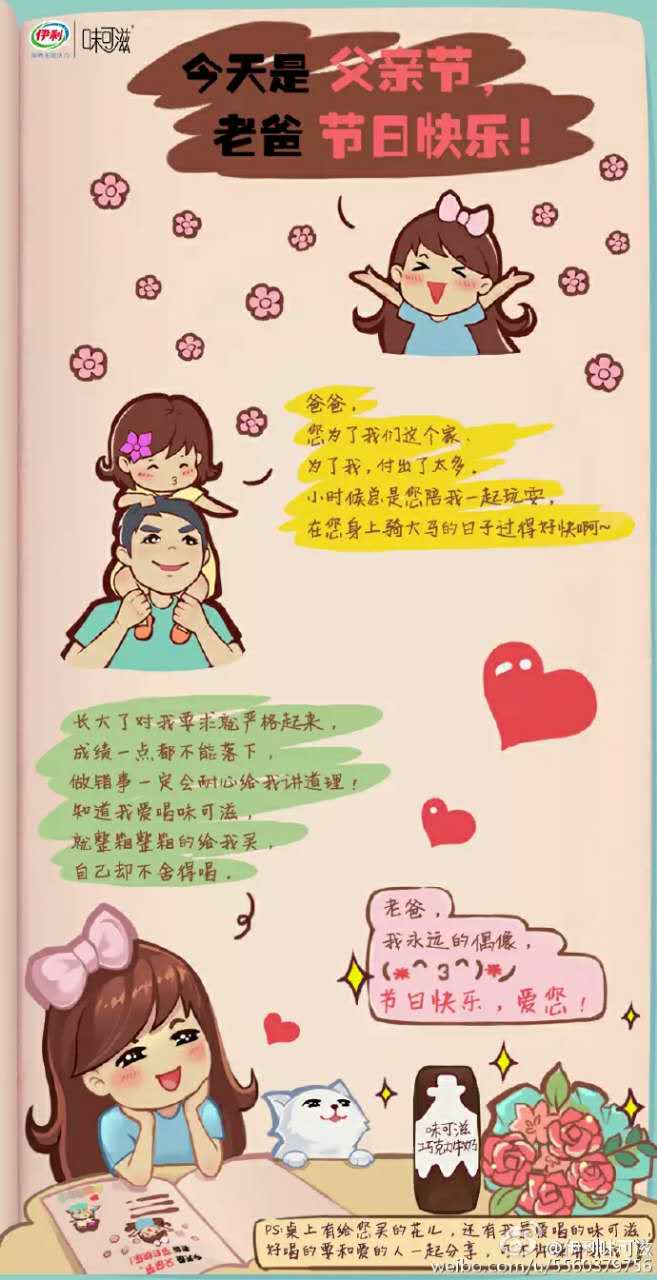 伊利
味可滋
今天是 父亲节，
老爸 节日快乐！
爸爸，
您为了我们这个家，
为了我，付出了太多。
小时候总是您陪我一起玩耍，
在您身上骑大马的日子过得好快啊~
长大了对我要求就严格起来，
成绩一点都不能落下，
做错事一定会耐心给我讲道理！
知道我爱喝味可滋，
就整箱整箱的给我买，
自己却不舍得喝。
老爸，
我永远的偶像，
(*^3^)*
节日快乐，爱您！
味可滋
巧克力牛奶
PS:桌上有给您买的花儿，还有我最爱喝的味可滋
好喝的要和爱的人一起分享，
@伊利味可滋
weibo.com/u/5560379756